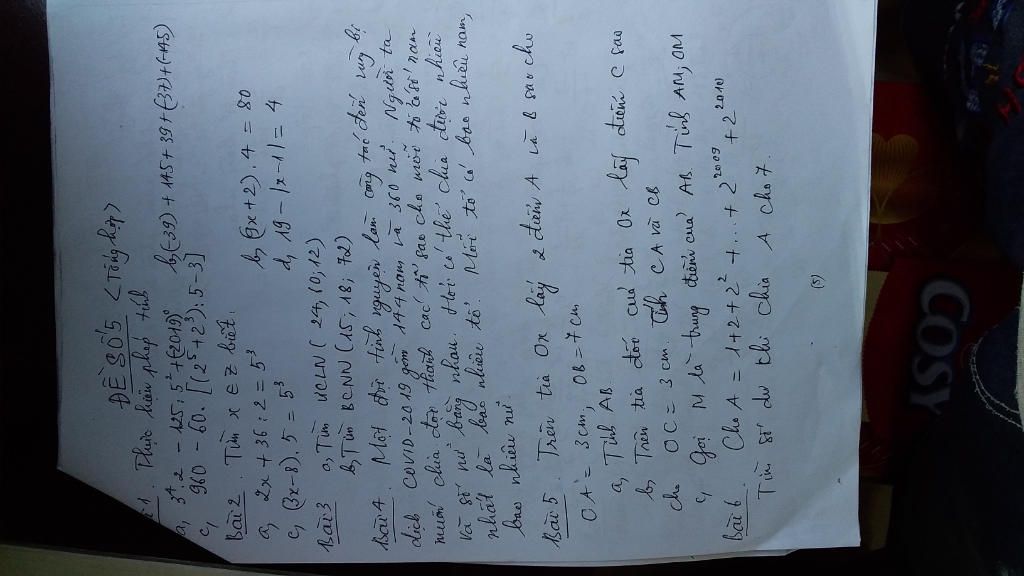 ĐỀ SỐ 5 < Tổng hợp >
1. Thực hiện phép tính
a, 3⁴.2 - 125:5² + (-2019)⁰ b, (-39) + 145 + 39 + (-37) + (-145)
c, 960 - 60.[(2⁵+2³).5-3]
Bài 2. Tìm x ∈ Z biết:
a, 2x + 36:2 = 5³ b, (5x+2).4 = 80
c, (3x-8).5 = 5³ d, 19 - |x-1| = 4
Bài 3 a, Tìm ƯCLN (24, 10, 12)
b, Tìm BCNN (15, 18, 72)
Bài 4. Một đội tình nguyện làm công tác đến vùng bị
dịch COVID-2019 gồm 144 nam và 360 nữ. Người ta
muốn chia đội thành các tổ sao cho mỗi tổ có số nam
và số nữ bằng nhau. Hỏi có thể chia được nhiều
nhất là bao nhiêu tổ. Mỗi tổ có bao nhiêu nam,
bao nhiêu nữ.
Bài 5. Trên tia Ox lấy 2 điểm A và B sao cho
OA = 3cm, OB = 7cm
a, Tính AB
b, Trên tia đối của tia Ox lấy điểm C sao
cho OC = 3cm. Tính CA và CB
c, Gọi M là trung điểm của AB. Tính AM, OM
Bài 6. Cho A = 1+2+2²+...+2²⁰⁰⁹+2²⁰¹⁰
Tìm số dư khi chia A cho 7.
(5)
COSY